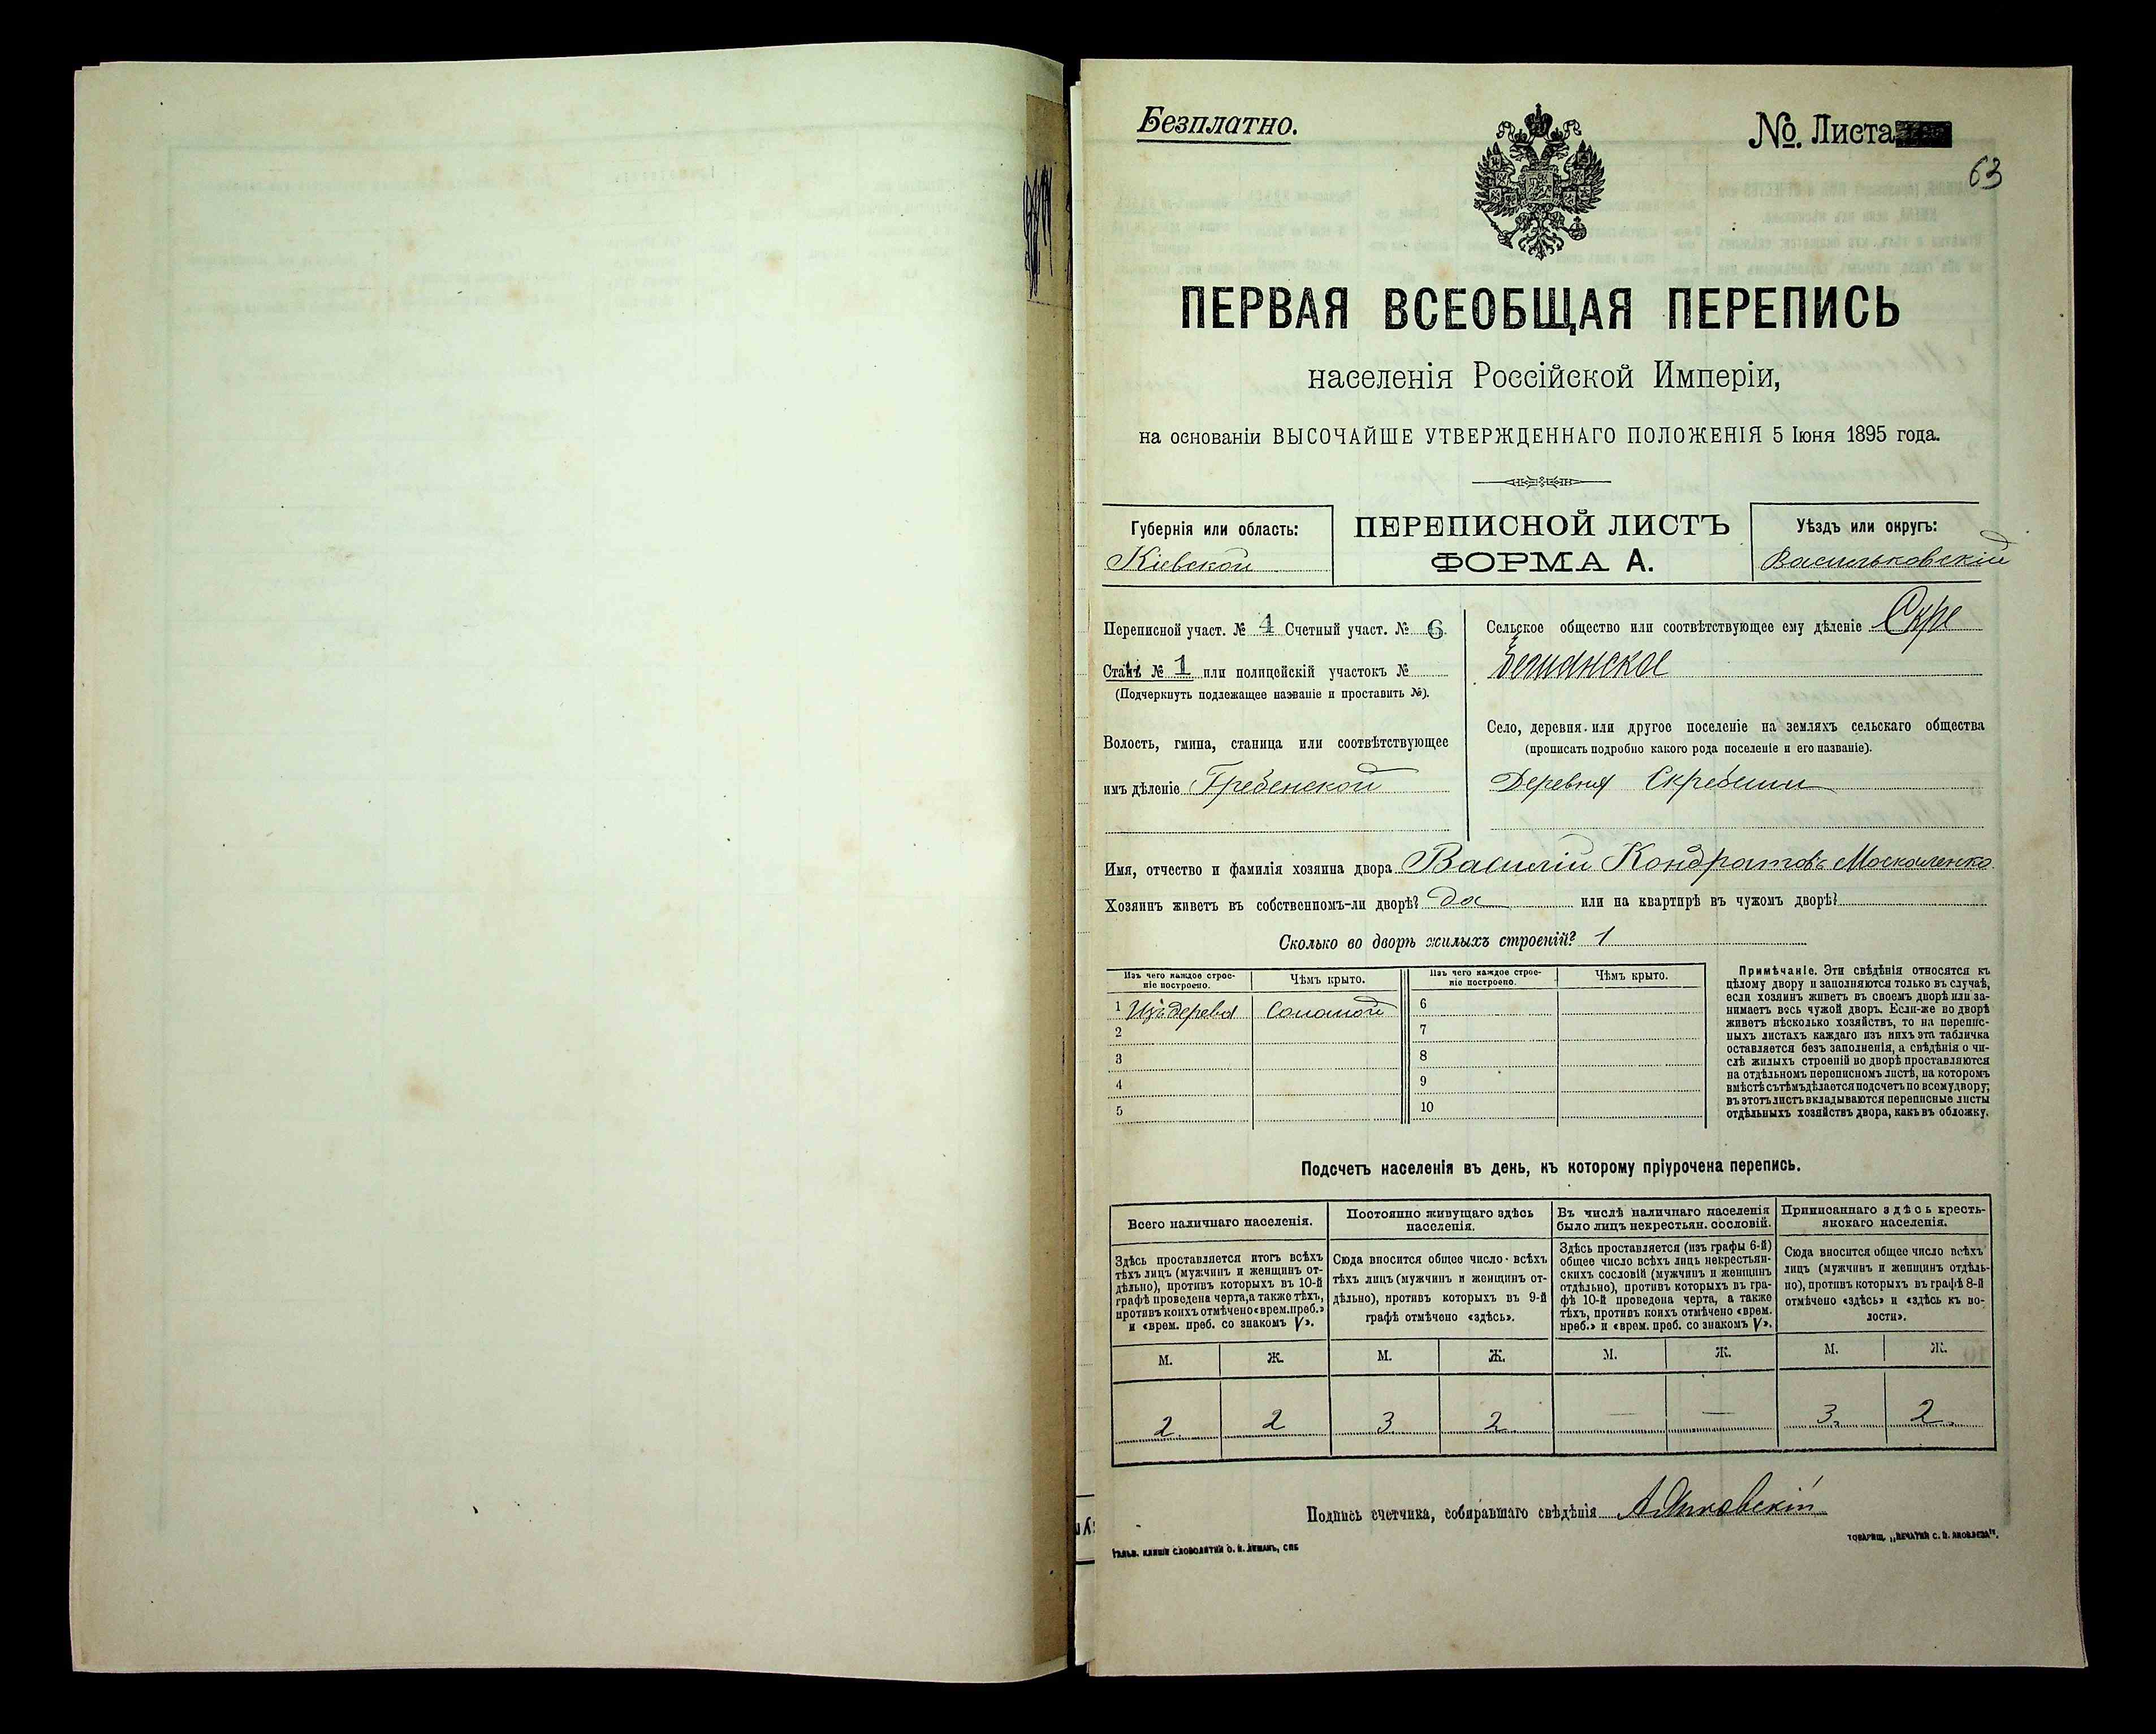 Безплатно.
№. Листа
63
ПЕРВАЯ ВСЕОБЩАЯ ПЕРЕПИСЬ
населенія Россійской Имперіи,
на основаніи ВЫСОЧАЙШЕ УТВЕРЖДЕННАГО ПОЛОЖЕНІЯ 5 Іюня 1895 года.
Губернія или область:
Кіевской
ПЕРЕПИСНОЙ ЛИСТЪ
ФОРМА А.
Уѣздъ или округъ:
Васильковскій
Переписной участ. № 4 Счетный участ. № 6
Станъ № 1 или полицейскій участокъ №
(Подчеркнуть подлежащее названіе и проставить №).
Волость, гмина, станица или соотвѣтствующее
имъ дѣленіе Гребенской
Сельское общество или соотвѣтствующее ему дѣленіе Скре
Село, деревня или другое поселеніе на земляхъ сельскаго общества
(прописать подробно какого рода поселеніе и его названіе).
Деревня Скребиши
Имя, отчество и фамилія хозяина двора Василій Кондратовъ Москаленко
Хозяинъ живетъ въ собственномъ-ли дворѣ? да или на квартирѣ въ чужомъ дворѣ?
Сколько во дворѣ жилыхъ строеній? 1
Изъ чего каждое строе-
ніе построено.
Чѣмъ крыто.
Изъ чего каждое строе-
ніе построено.
Чѣмъ крыто.
1 Изъ дерева Соломой 6
2 7
3 8
4 9
5 10
Примѣчаніе. Эти свѣдѣнія относятся къ
цѣлому двору и заполняются только въ случаѣ,
если хозяинъ живетъ въ своемъ дворѣ или за-
нимаетъ весь чужой дворъ. Если-же во дворѣ
живетъ нѣсколько хозяйствъ, то на перепис-
ныхъ листахъ каждаго изъ нихъ эта табличка
оставляется безъ заполненія, а свѣдѣнія о чи-
слѣ жилыхъ строеній во дворѣ проставляются
на отдѣльномъ переписномъ листѣ, на которомъ
вмѣстѣ съ тѣмъ дѣлается подсчетъ по всему двору;
въ этотъ листъ вкладываются переписные листы
отдѣльныхъ хозяйствъ двора, какъ въ обложку.
Подсчетъ населенія въ день, къ которому пріурочена перепись.
Всего наличнаго населенія.
Здѣсь проставляется итогъ всѣхъ
тѣхъ лицъ (мужчинъ и женщинъ от-
дѣльно), противъ которыхъ въ 10-й
графѣ проведена черта, а также тѣхъ,
противъ коихъ отмѣчено «врем. преб.»
и «врем. преб. со знакомъ V».
Постоянно живущаго здѣсь
населенія.
Сюда вносится общее число всѣхъ
тѣхъ лицъ (мужчинъ и женщинъ от-
дѣльно), противъ которыхъ въ 9-й
графѣ отмѣчено «здѣсь».
Въ числѣ наличнаго населенія
было лицъ некрестьян. сословій.
Здѣсь проставляется (изъ графы 6-й)
общее число всѣхъ лицъ некрестьян-
скихъ сословій (мужчинъ и женщинъ
отдѣльно), противъ которыхъ въ гра-
фѣ 10-й проведена черта, а также
тѣхъ, противъ коихъ отмѣчено «врем.
преб.» и «врем. преб. со знакомъ V».
Приписаннаго здѣсь кресть-
янскаго населенія.
Сюда вносится общее число всѣхъ
лицъ (мужчинъ и женщинъ отдѣль-
но), противъ которыхъ въ графѣ 8-й
отмѣчено «здѣсь» и «здѣсь къ во-
лости».
М. Ж. М. Ж. М. Ж. М. Ж.
2. 2 3 2 — — 3. 2
Подпись счетчика, собиравшаго свѣдѣнія
ГАЛЬВ. КЛИШЕ СЛОВОЛИТНИ О. И. ЛЕМАНЪ, СПБ
ТОВАРИЩ. „ПЕЧАТНИ С. П. ЯКОВЛЕВА“.